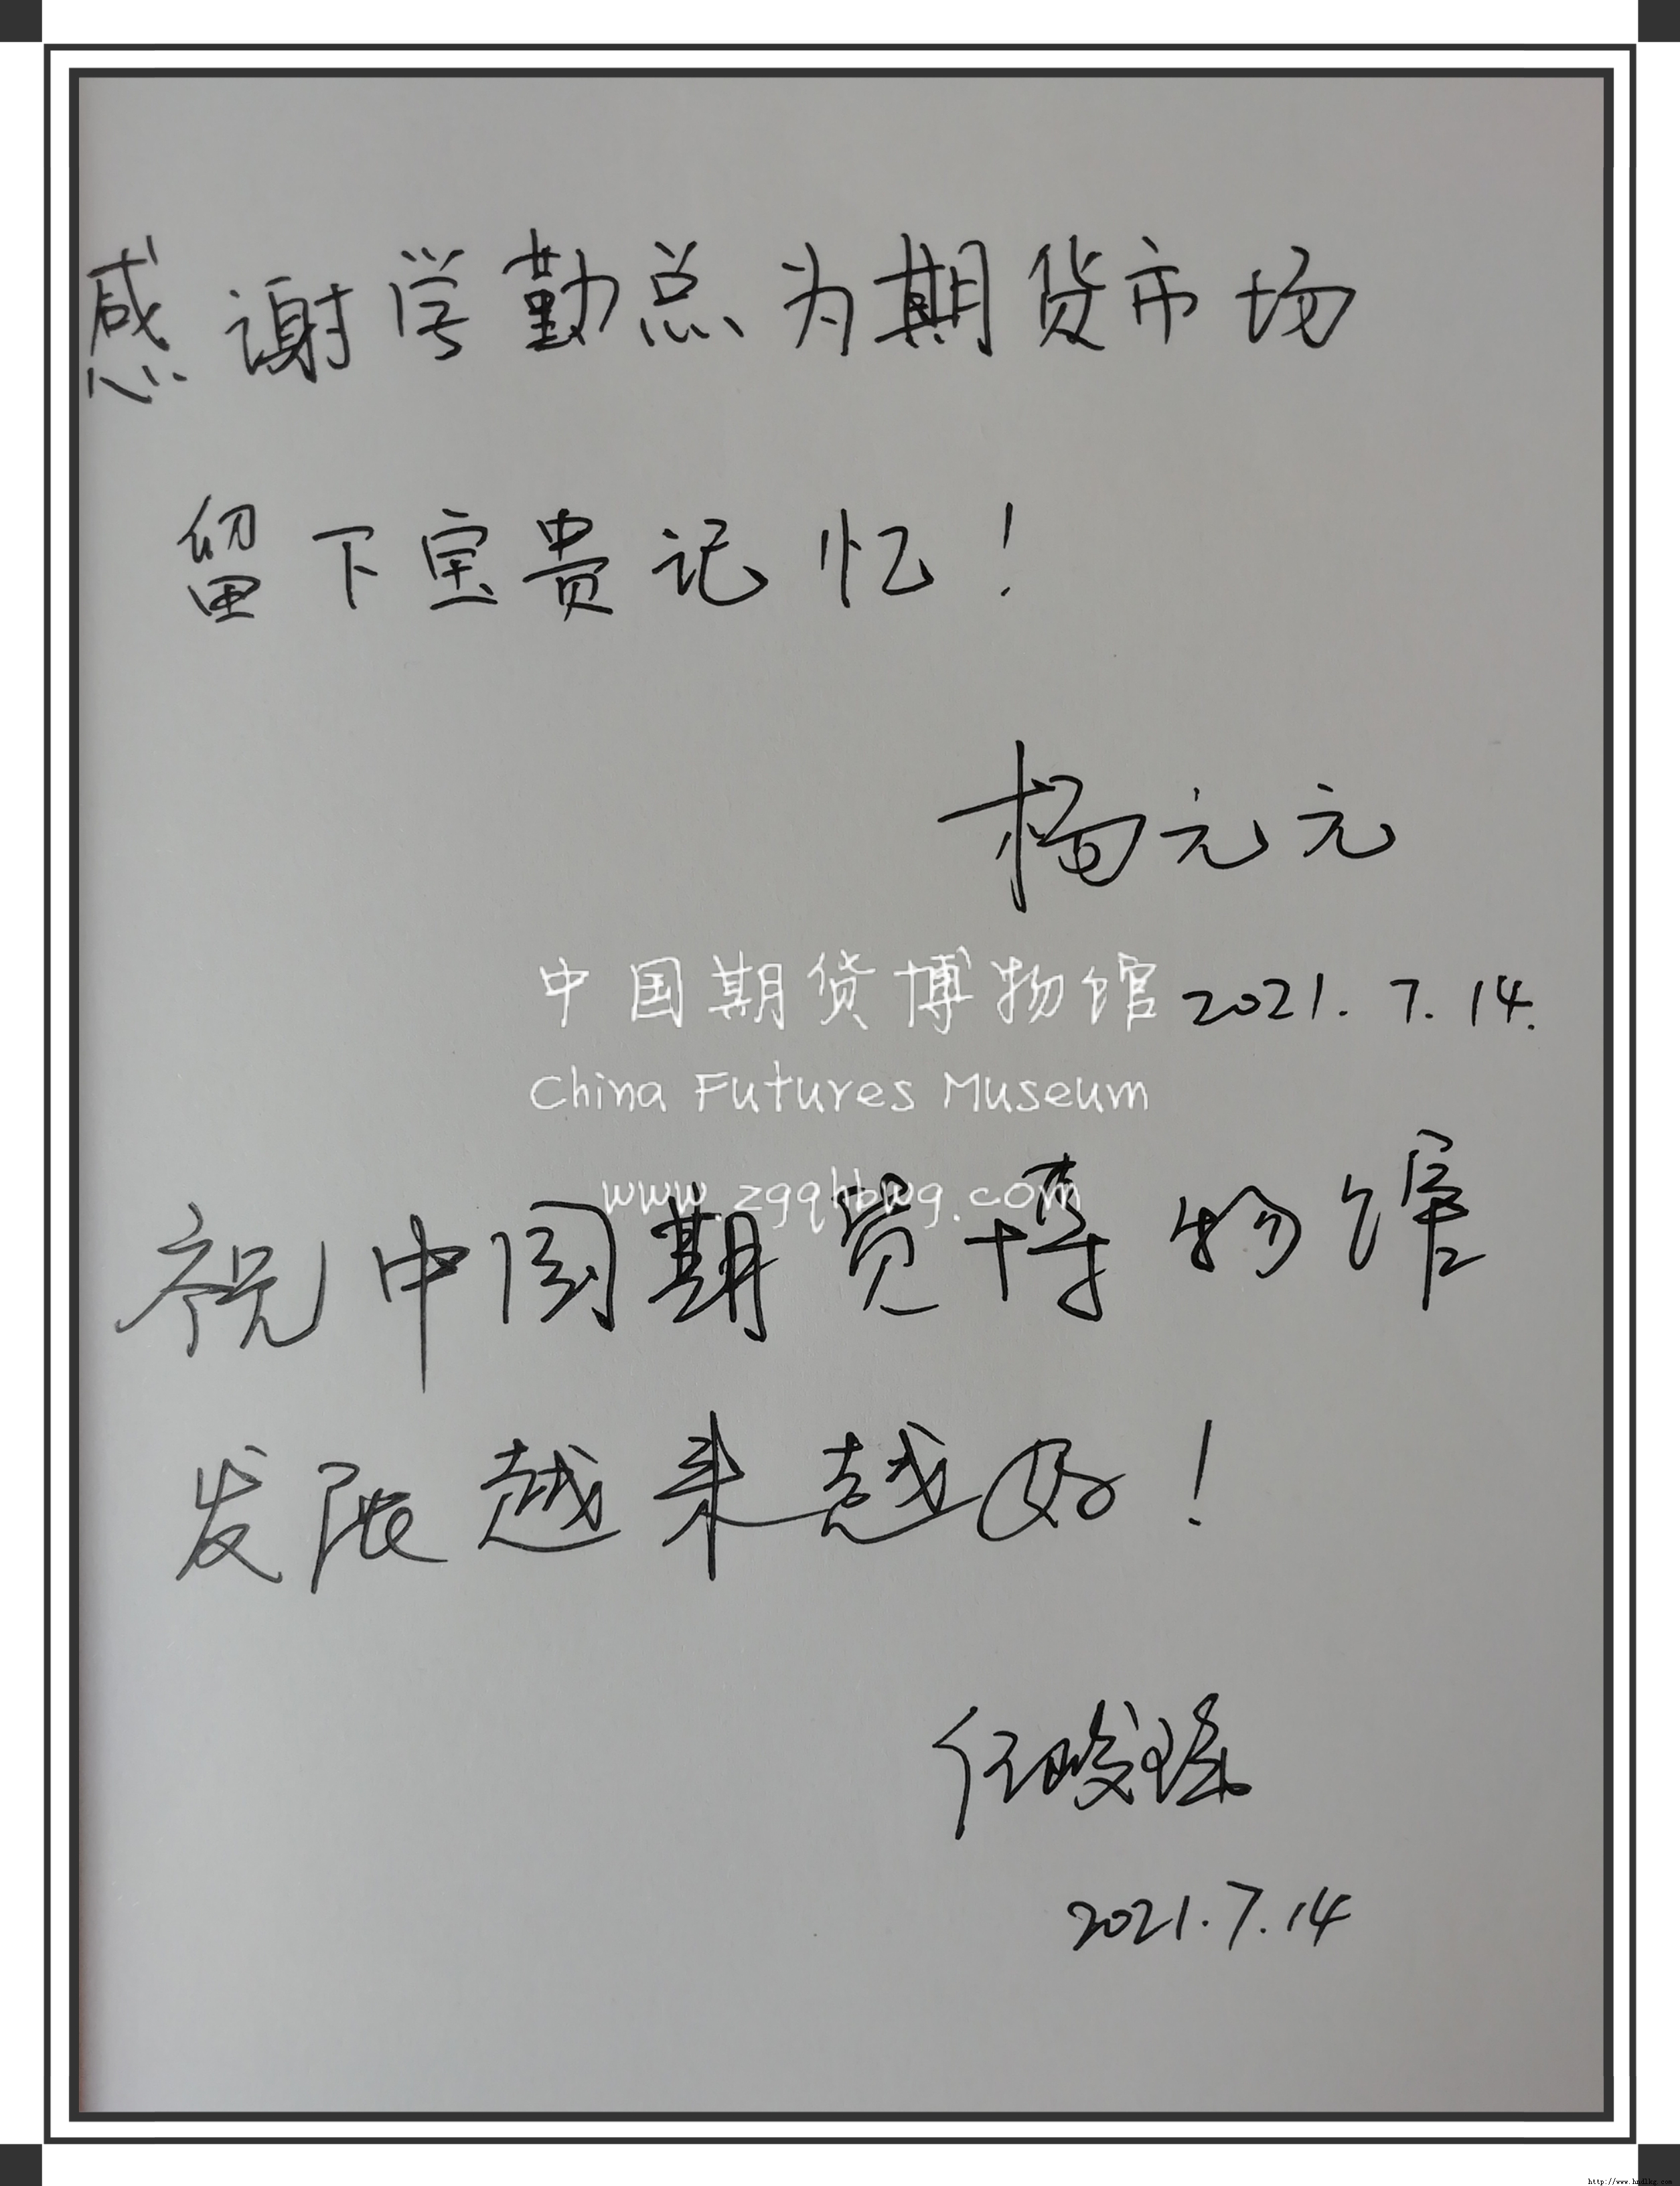 感谢学勤总为期货市场
留下宝贵记忆！
杨元元
中国期货博物馆 2021.7.14.
China Futures Museum
www.zgqhbwg.com
祝中国期货博物馆
发展越来越好！
任峻瑶
2021.7.14